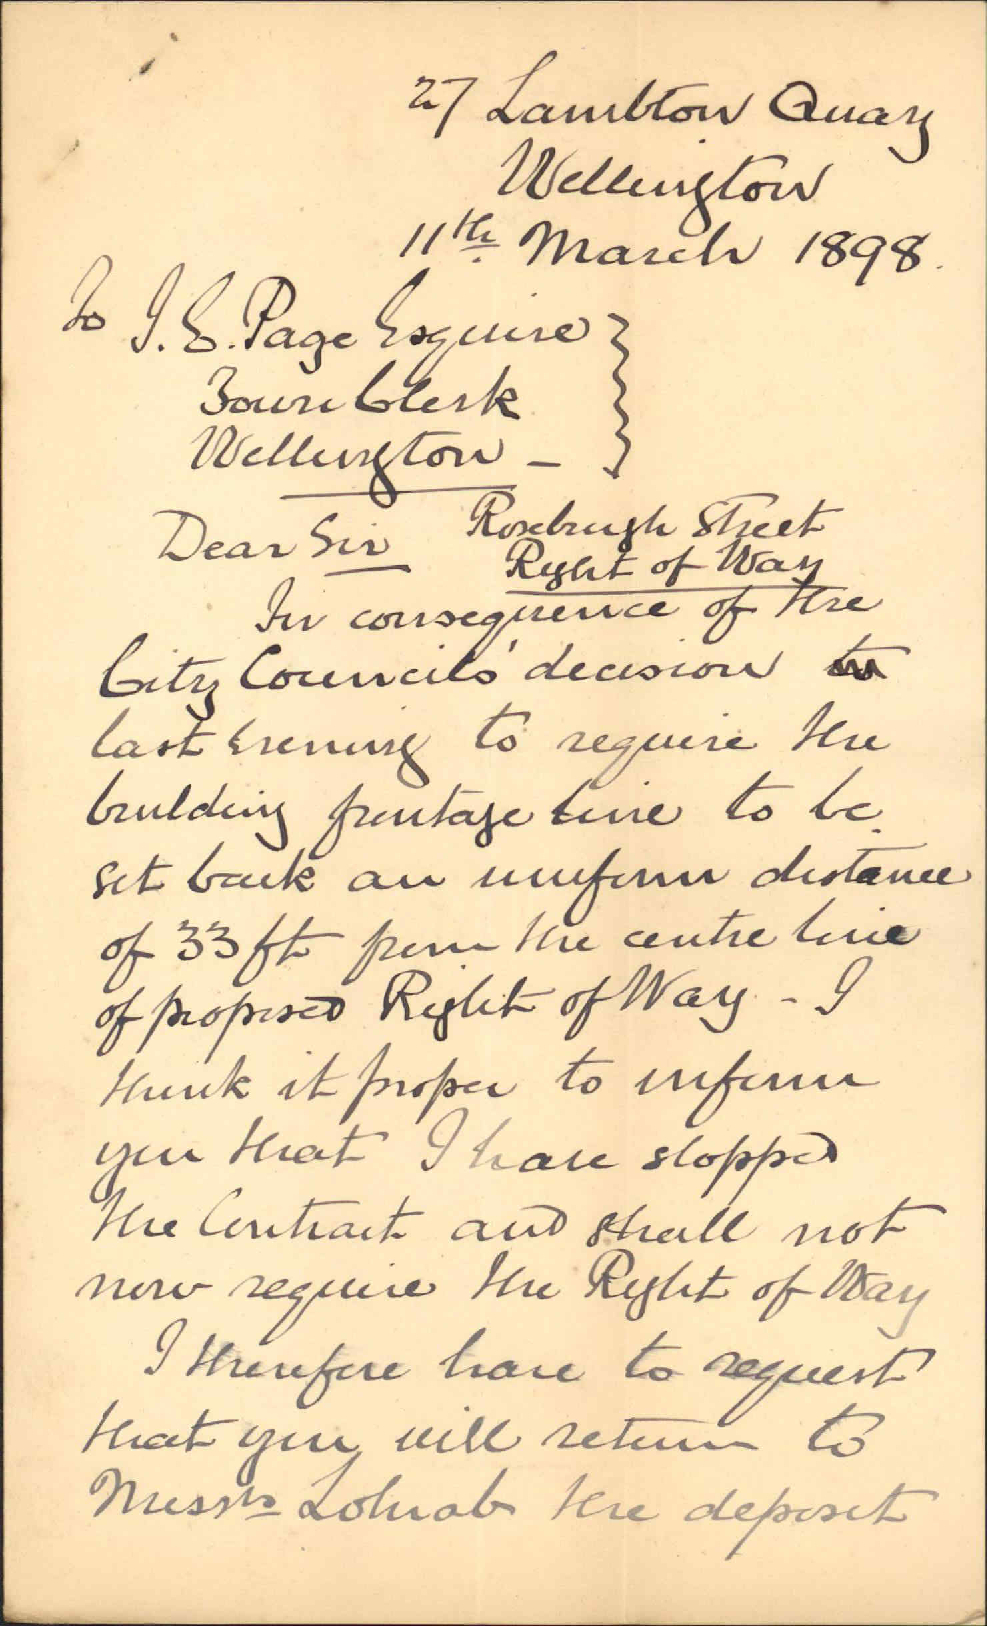 27 Lambton Quay
Wellington
11th March 1898.
To J. E. Page Esquire
Town Clerk
Wellington –
Dear Sir
Rosebrugh Street
Right of Way
In consequence of the
City Councils' decision
last Evening to require the
building frontage line to be
set back an uniform distance
of 33 ft from the centre line
of proposed Right of Way - I
think it proper to inform
you that I have stopped
the Contract and shall not
now require the Right of Way
I therefore have to request
that you will return to
Messrs Lohrab the deposit